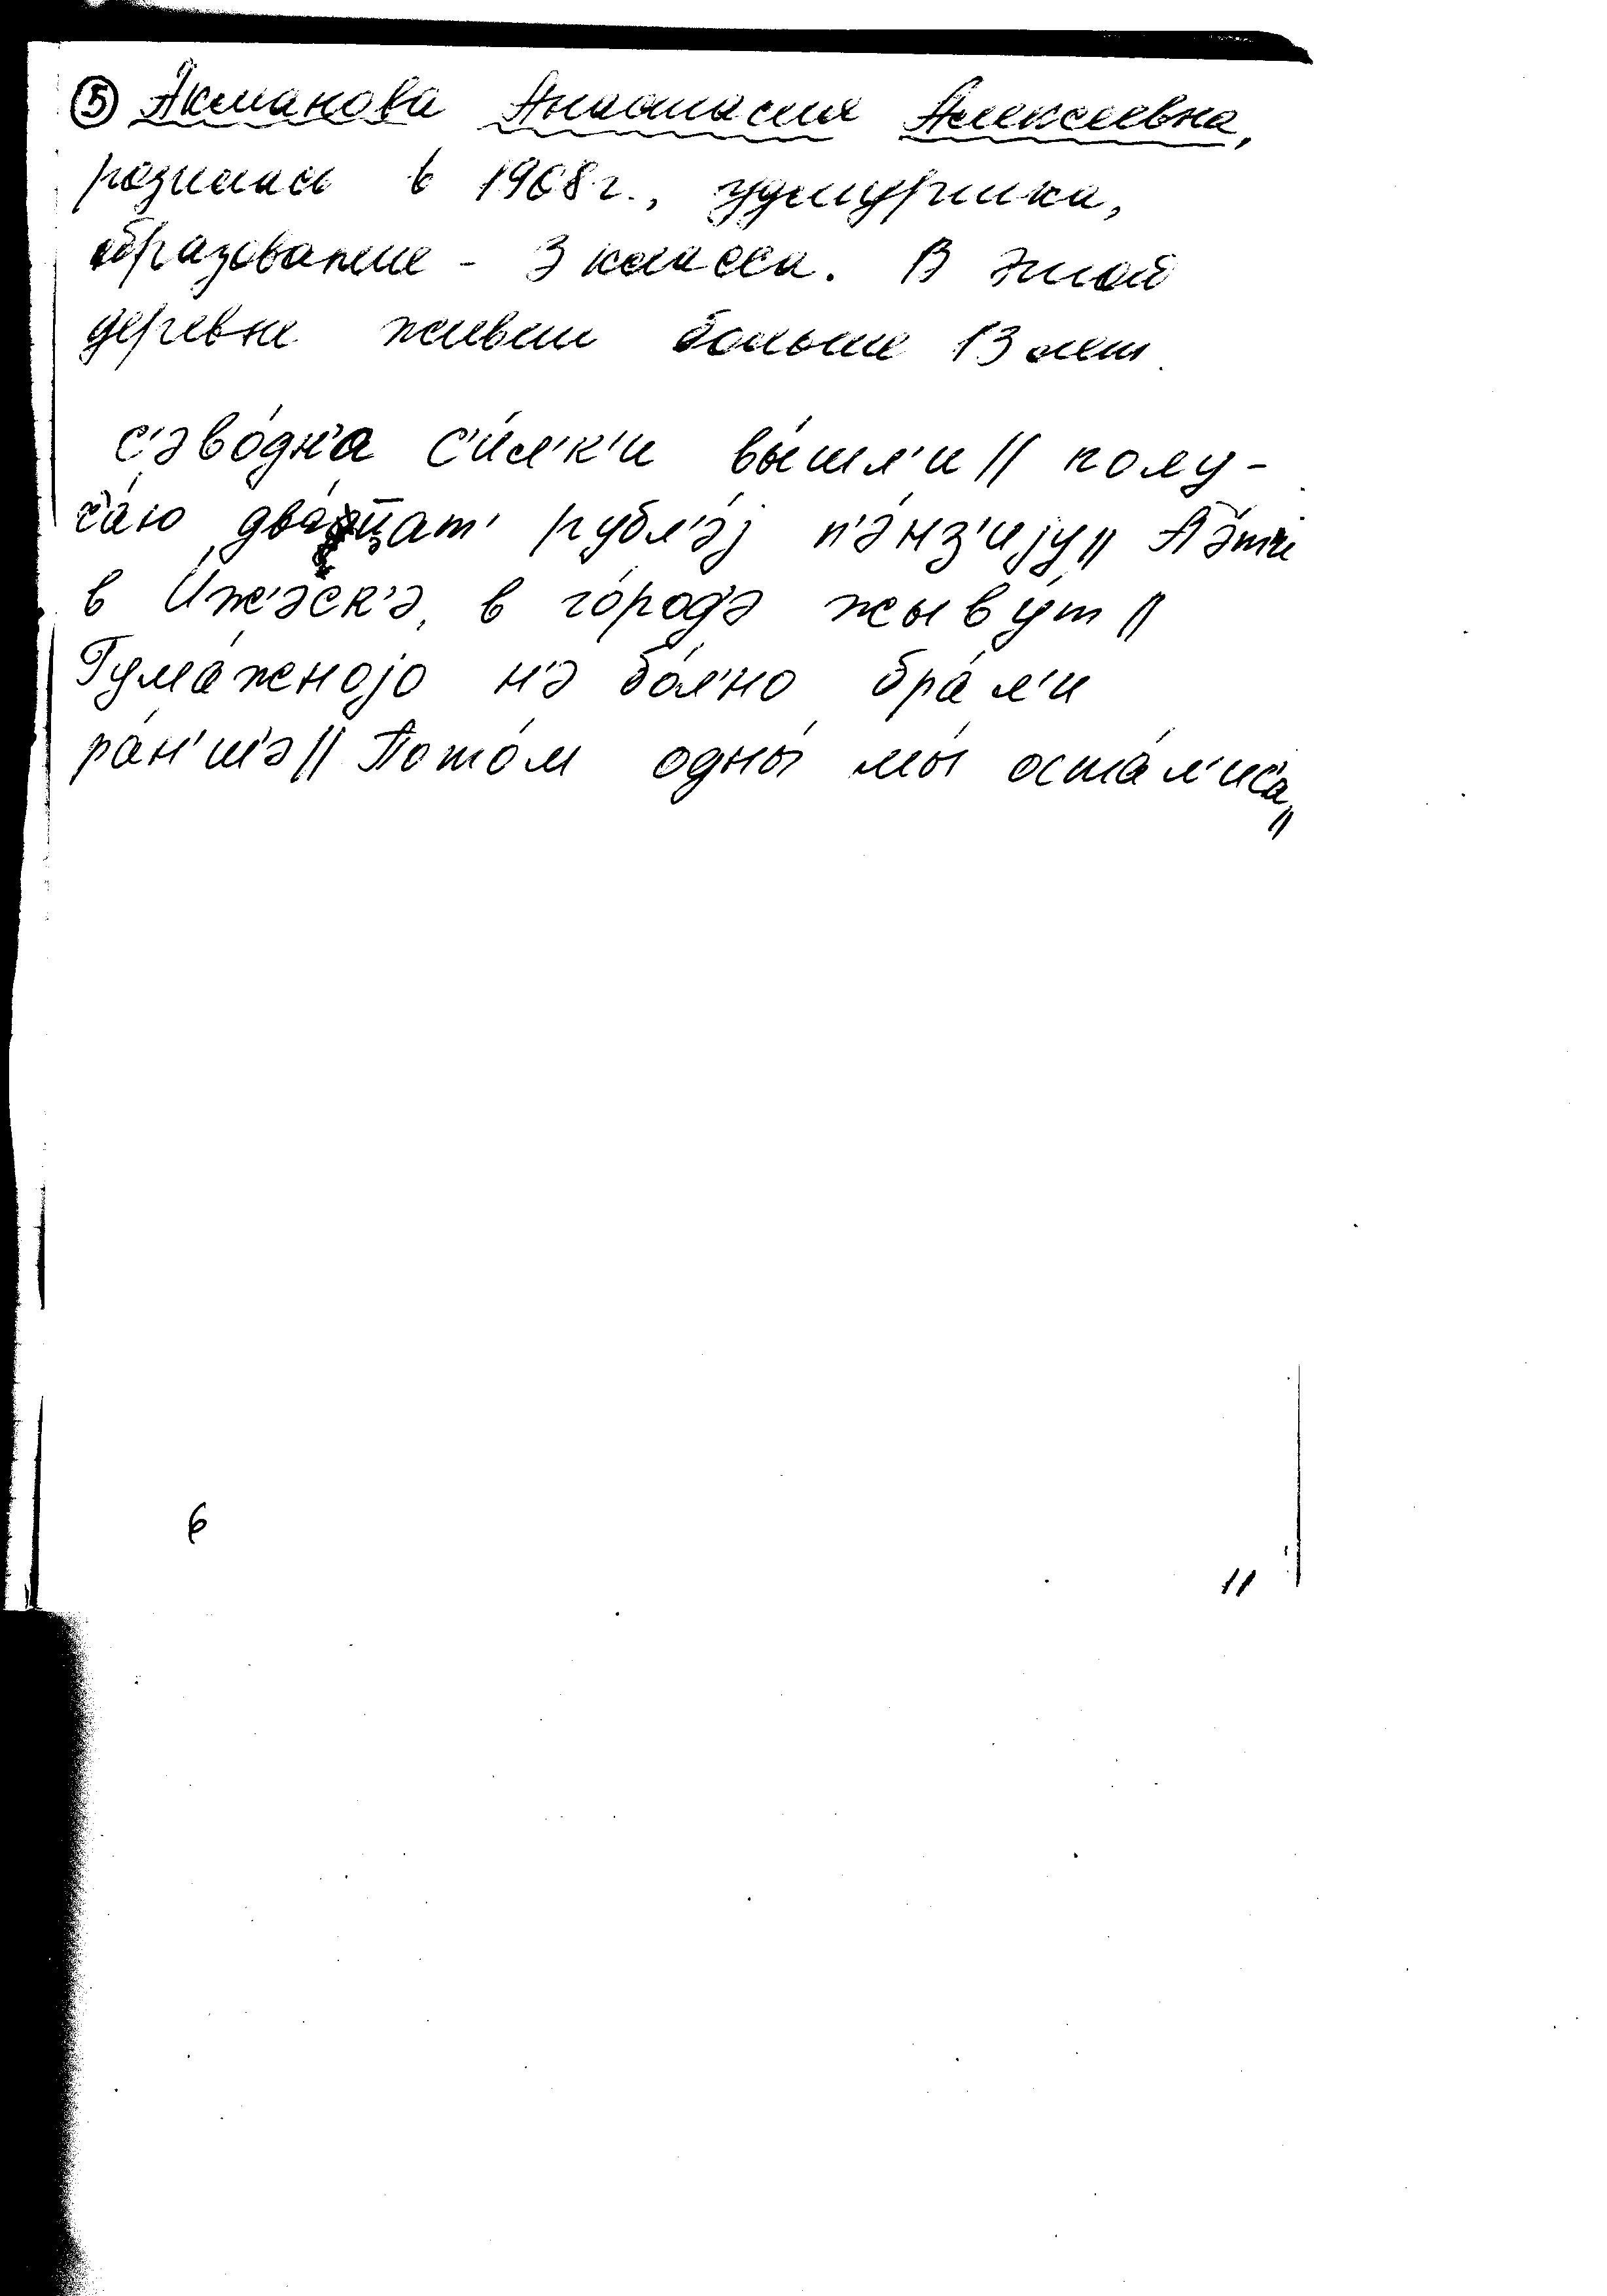 ⑤ Акманова Анастасия Алексеевна,
родилась в 1908 г., удмуртка,
образование - 3 класса. В этой
деревне живет больше 13 лет.
с'эво́дн'а с'и́л'к'и вы́шл'и // полу-
ча́ю два́ццат' рубл'э́j п'э́нз'иjу // Д'э́ти
в Иж'э́ск'э, в го́род'э жыву́т //
Гума́жноjо н'э бо́л'но бра́л'и
ра́н'ш'э // Пото́м одны́ мы́ оста́л'ис'а //
6
11